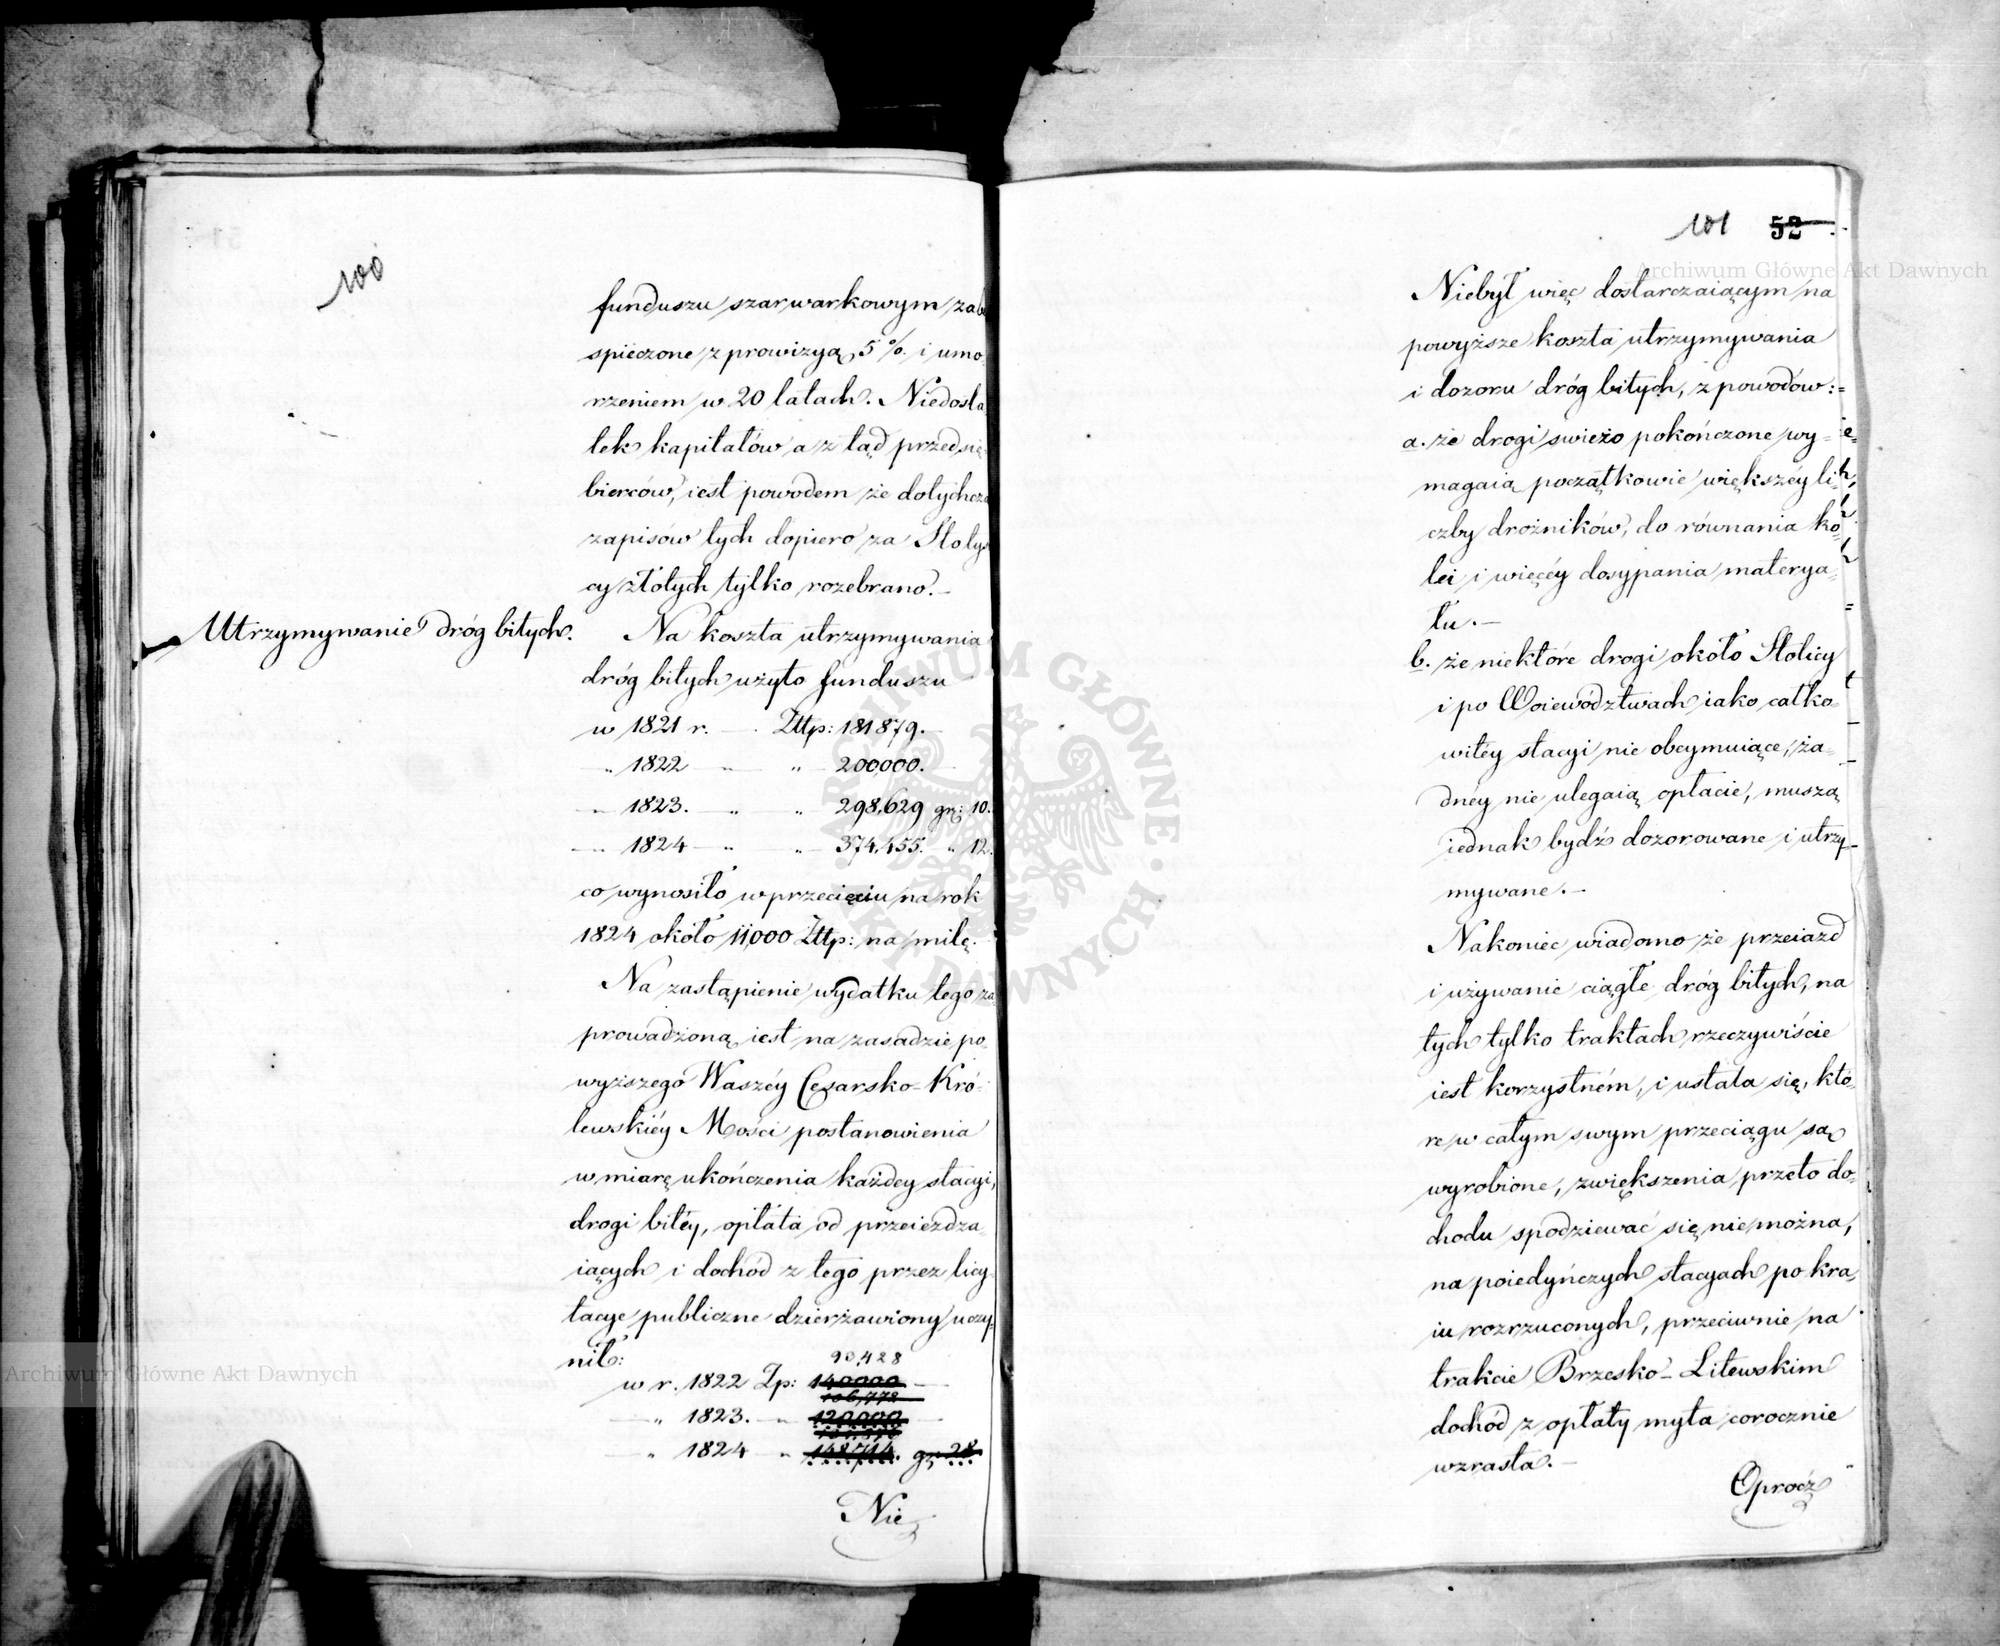 100
funduszu szarwarkowym zabe
spieczone z prowizyą 5 %. i umo-
rzeniem w 20 latach. Niedosta
tek kapitałów a z tąd przedsię-
bierców, iest powodem że dotychcza
zapisów tych dopiero za
cy złotych tylko rozebrano. —
Utrzymywanie dróg bitych.
Na koszta utrzymywania
dróg bitych użyto funduszu
w 1821 r. — Złtp: 181879. —
— „ 1822 — „ — „ — 200,000. —
— „ 1823. — „ — „ — 298,629 gr: 10.
— „ 1824 — „ — „ — 374,455. „ 12.
co wynosiło w przecięciu na rok
1824 około 11,000 Złtp: na milę. —
Na zastąpienie wydatku tego za
prowadzoną iest na zasadzie po-
wyższego Waszéy Cesarsko-Kró-
lewskiéy Mości postanowienia
w miarę ukończenia każdey stacyi,
drogi bitéy, opłata od przeieżdza-
iących i dochód z tego przez licy-
tacye publiczne dzierżawiony uczy-
nił:
90,428
w r. 1822 Zp: 140000 —
106,772
— „ 1823. — „ 120,000 —
— „ 1824 — „ 148,714. gr 28
Nie
101 52
Niebył więc dostarczaiącym na
powyższe koszta utrzymywania
i dozoru dróg bitych, z powodów:=
a. że drogi świeżo pokończone wy-
magaią początkowie większéy li-
czby drożników, do równania ko-
lei i więcéy dosypania materya-
łu. —
b. że niektóre drogi około Stolicy
i po Woiewództwach iako całko-
witéy stacyi nie obeymuiące, ża-
dnéy nie ulegaią opłacie, muszą
iednak bydź dozorowane i utrzy-
mywane. —
Nakoniec wiadomo że przeiazd
i używanie ciągłe dróg bitych, na
tych tylko traktach rzeczywiście
iest korzystném, i ustala się, któ-
re w całym swym przeciągu są
wyrobione, zwiększenia przeto do-
chodu spodziewać się nie można,
na poiedyńczych stacyach po kra-
iu rozrzuconych, przeciwnie na
trakcie Brzesko-Litewskim
dochód z opłaty myta corocznie
wzrasta. —
Oprócz
Archiwum Główne Akt Dawnych
Archiwum Główne Akt Dawnych
ARCHIWUM GŁÓWNE AKT DAWNYCH